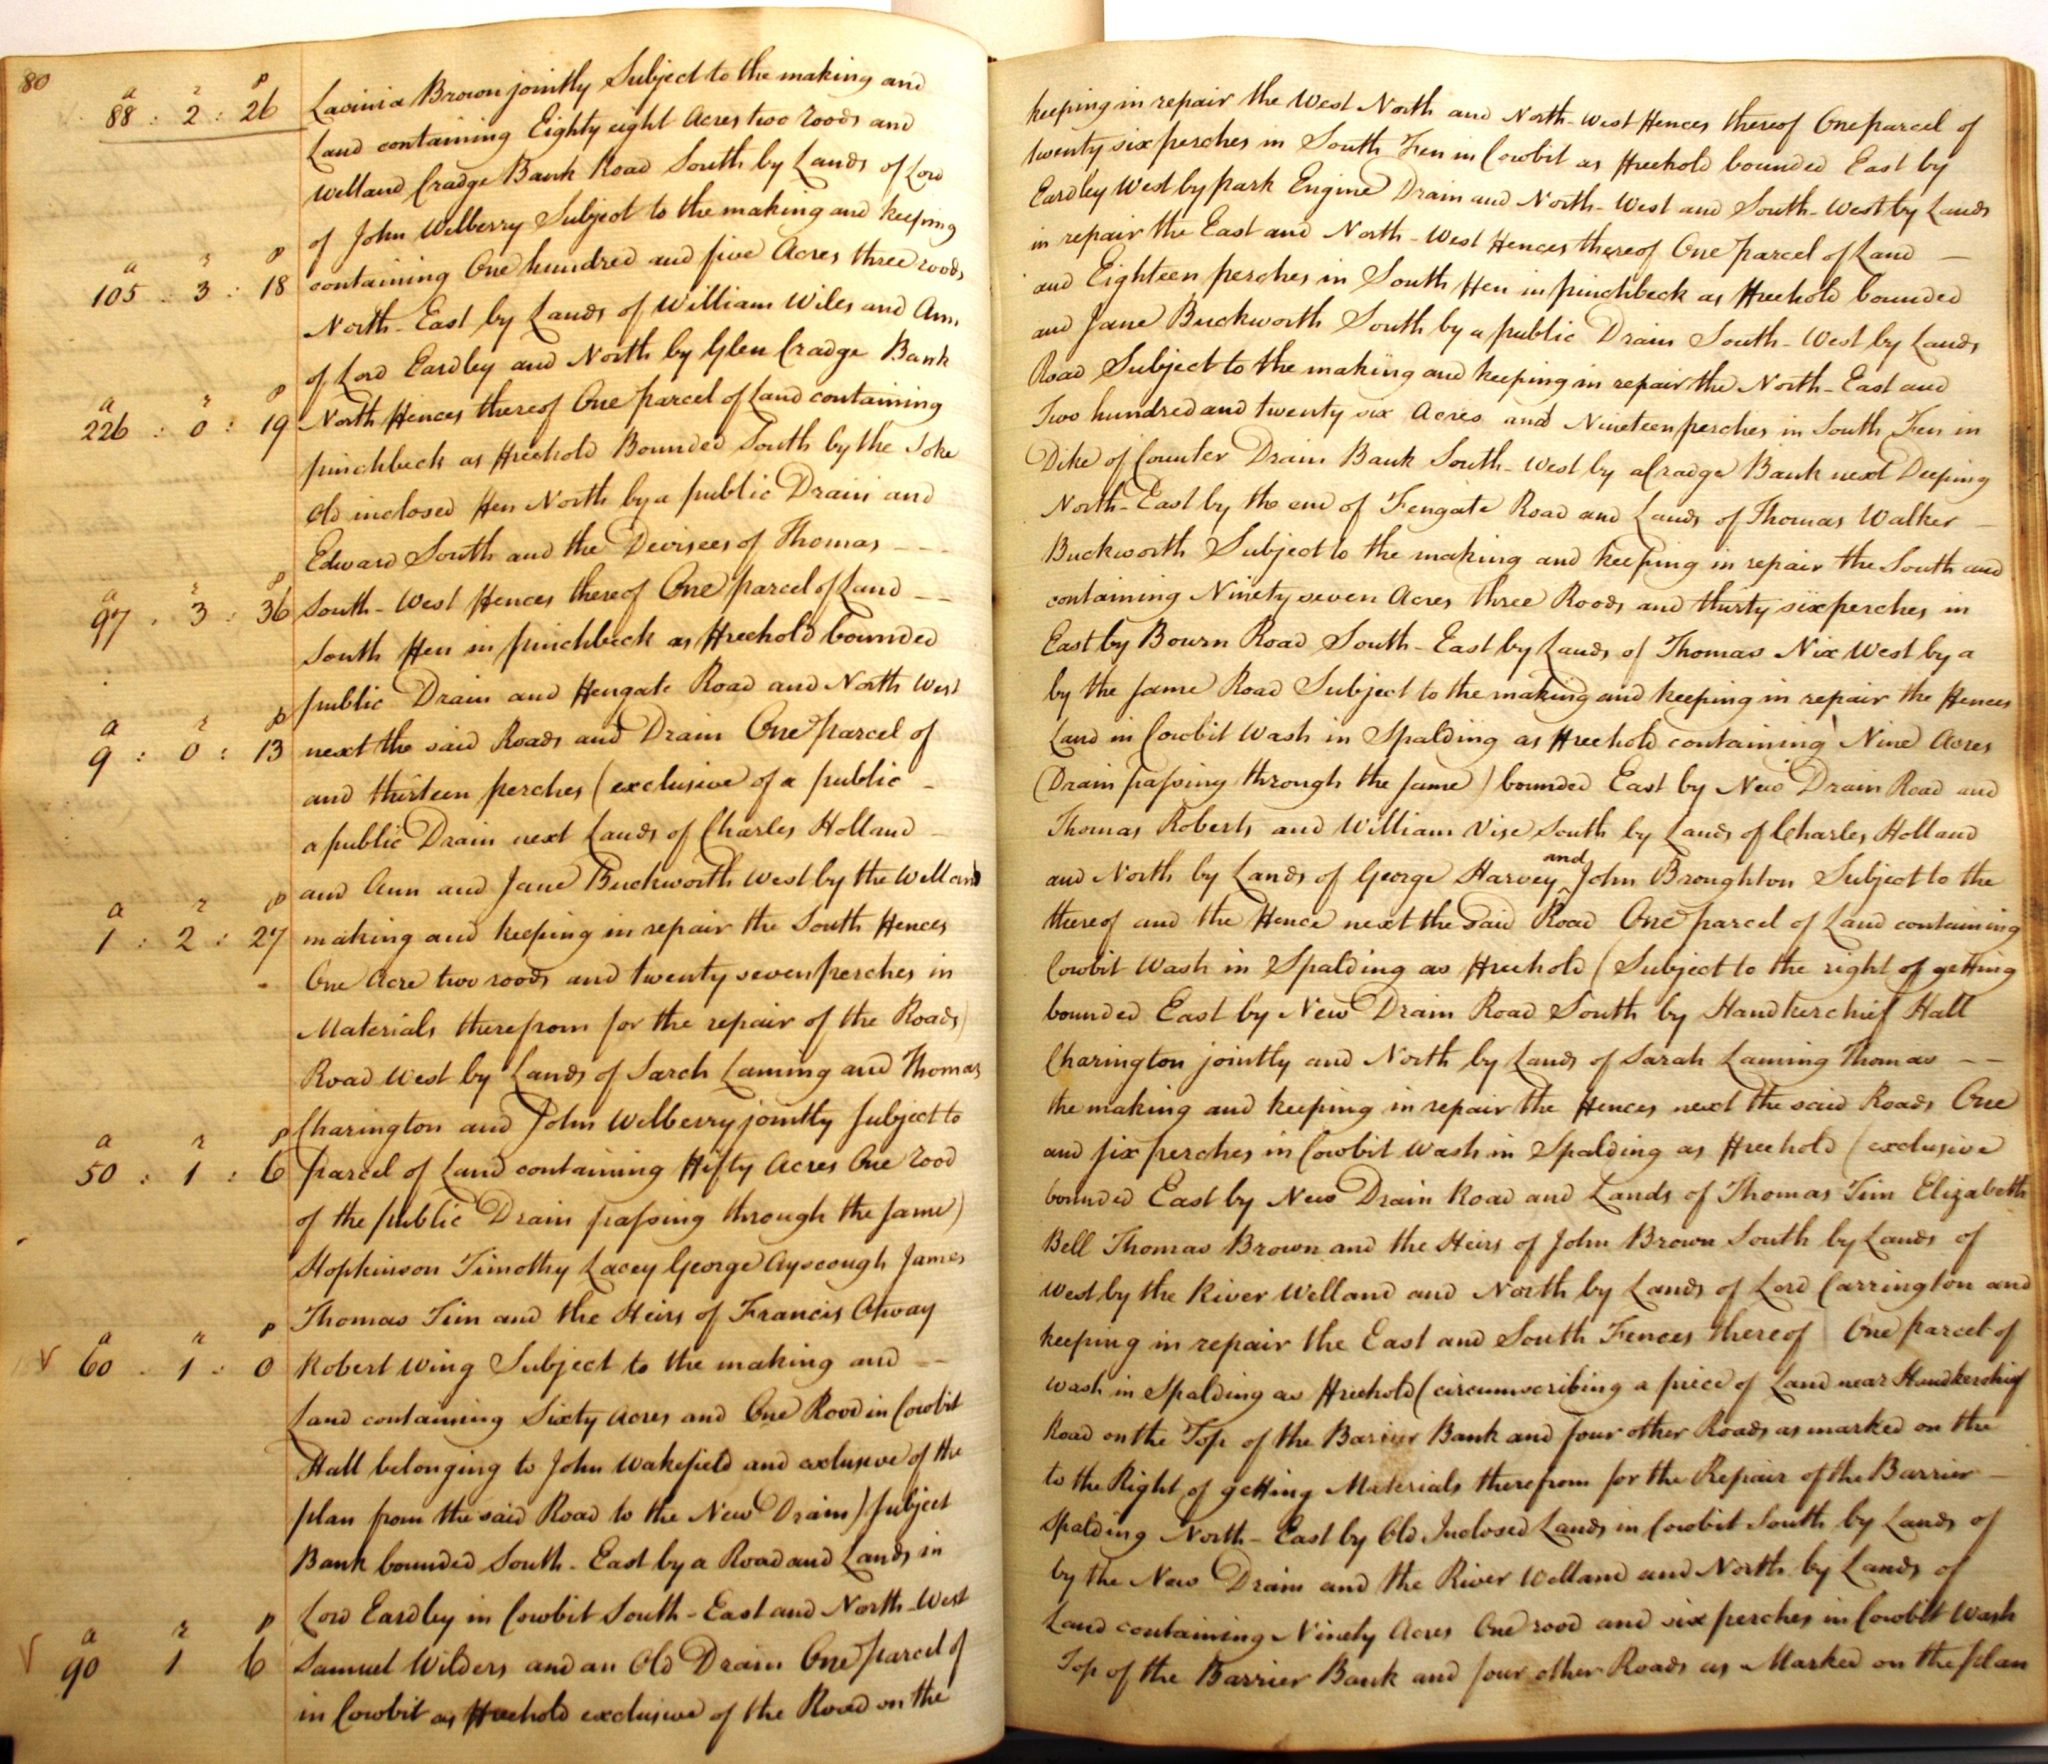 80
a r p
88 : 2 : 26
Lavinia Brown jointly Subject to the making and keeping in repair the West North and North-West Fences thereof One parcel of
Land containing Eighty eight Acres two roods and twenty six perches in South Fen in Cowbit as Freehold bounded East by
Welland Cradge Bank Road South by Lands of Lord Eardley West by park Engine Drain and North-West and South-West by Lands
of John Wilberry Subject to the making and keeping in repair the East and North-West Fences thereof One parcel of Land —
a r p
105 : 3 : 18
containing One hundred and five Acres three roods and Eighteen perches in South Fen in pinchbeck as Freehold bounded
North-East by Lands of William Wiles and Ann and Jane Buckworth South by a public Drain South-West by Lands
of Lord Eardley and North by Glen Cradge Bank Road Subject to the making and keeping in repair the North-East and
a r p
226 : 0 : 19
North Fences thereof One parcel of Land containing Two hundred and twenty six Acres and Nineteen perches in South Fen in
pinchbeck as Freehold Bounded South by the Soke Dike of Counter Drain Bank South-West by a Cradge Bank next Deeping
Old inclosed Fen North by a public Drain and North-East by the end of Fengate Road and Lands of Thomas Walker —
Edward South and the Devisees of Thomas — — Buckworth Subject to the making and keeping in repair the South and
a r p
97 : 3 : 36
South-West Fences thereof One parcel of Land — — containing Ninety seven Acres three Roods and thirty six perches in
South Fen in pinchbeck as Freehold bounded East by Bourn Road South-East by Lands of Thomas Nix West by a
public Drain and Fengate Road and North West by the same Road Subject to the making and keeping in repair the Fences
a r p
9 : 0 : 13
next the said Roads and Drain One parcel of Land in Cowbit Wash in Spalding as Freehold containing Nine Acres
and thirteen perches (exclusive of a public — Drain passing through the same) bounded East by New Drain Road and
a public Drain next Lands of Charles Holland — Thomas Roberts and William Vise South by Lands of Charles Holland
and Ann and Jane Buckworth West by the Welland and North by Lands of George Harvey and John Broughton Subject to the
a r p
1 : 2 : 27
making and keeping in repair the South Fences thereof and the Fence next the said Road One parcel of Land containing
One Acre two roods and twenty seven perches in Cowbit Wash in Spalding as Freehold (Subject to the right of getting
Materials therefrom for the repair of the Roads) bounded East by New Drain Road South by Handkerchief Hall
Road West by Lands of Sarah Laming and Thomas Charington jointly and North by Lands of Sarah Laming Thomas — —
Charington and John Wilberry jointly Subject to the making and keeping in repair the Fences next the said Roads One
a r p
50 : 1 : 6
parcel of Land containing Fifty Acres One rood and six perches in Cowbit Wash in Spalding as Freehold (exclusive
of the public Drain passing through the same) bounded East by New Drain Road and Lands of Thomas Tim Elizabeth
Hopkinson Timothy Lacey George Ayscough James Bell Thomas Brown and the Heirs of John Brown South by Lands of
Thomas Tim and the Heirs of Francis Otway West by the River Welland and North by Lands of Lord Carrington and
a r p
60 : 1 : 0
Robert Wing Subject to the making and — keeping in repair the East and South Fences thereof One parcel of
Land containing Sixty Acres and One Rood in Cowbit Wash in Spalding as Freehold (circumscribing a piece of Land near Handkerchief
Hall belonging to John Wakefield and exclusive of the Road on the Top of the Barier Bank and four other Roads as marked on the
plan from the said Road to the New Drain) subject to the Right of getting Materials therefrom for the Repair of the Barrier —
Bank bounded South-East by a Road and Lands in Spalding North-East by Old Inclosed Lands in Cowbit South by Lands of
Lord Eardley in Cowbit South-East and North-West by the New Drain and the River Welland and North by Lands of
a r p
90 1 6
Samuel Wilders and an Old Drain One parcel of Land containing Ninety Acres One rood and six perches in Cowbit Wash
in Cowbit as Freehold exclusive of the Road on the Top of the Barrier Bank and four other Roads as Marked on the plan